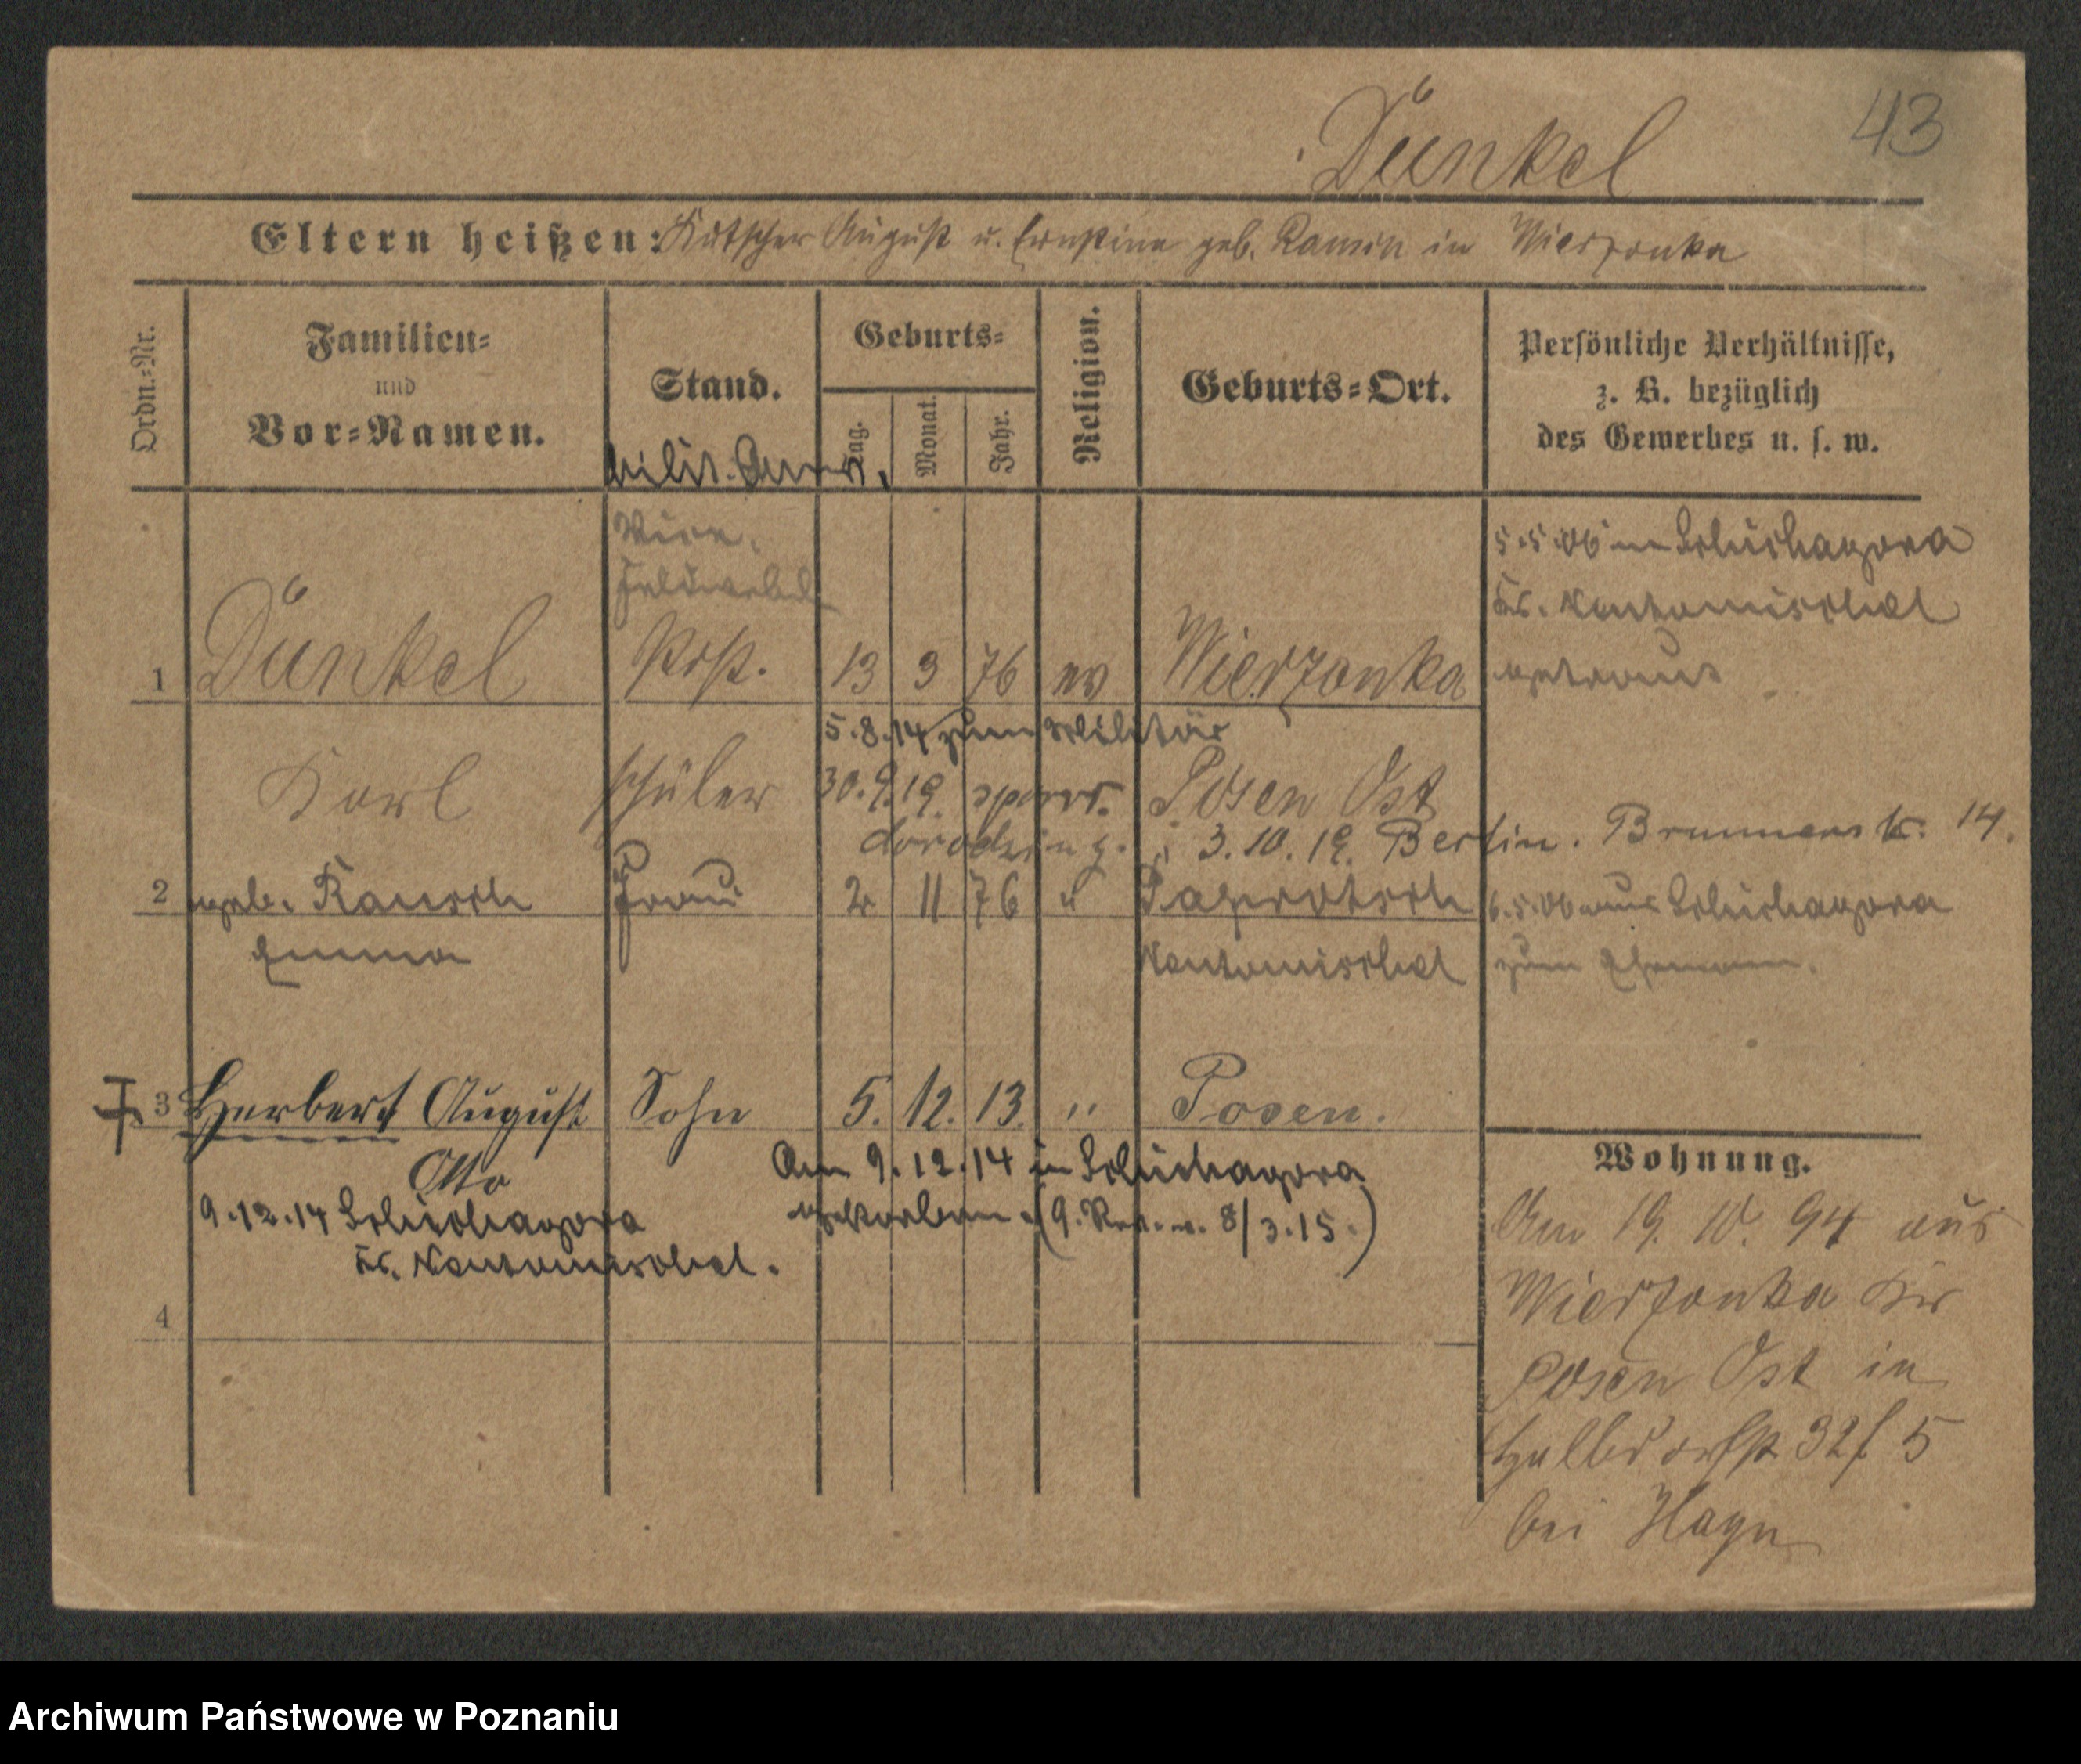 43
Dünkel
Eltern heißen: Kutscher August u. Ernstine geb. Ramin in Wierzonka
Ordn.-Nr.
Familien-
und
Vor-Namen.
Stand.
Geburts-
Tag.
Monat.
Jahr.
Religion.
Geburts-Ort.
Persönliche Verhältnisse,
z. B. bezüglich
des Gewerbes u. s. w.
Milit. Anw.
Vice.
Feldwebel
1 Dünkel Präp. 13 3 76 ev Wierzonka
5.5.06 in Schichagora
Kr. Neutomischel
getraut
5.8.14 zum Militär
Karl schüler 30.9.19. Posen Ost
dorodzin z. 3.10.19. Berlin. Brunnenstr. 14.
2 geb. Rausch Frau 2 11 76 " Paprotsch 6.5.06 aus Schichagora
Emma Neutomischel zum Ehemann.
3 Herbert August Sohn 5. 12. 13. " Posen.
Otto
Am 9.12.14 in Schichagora
gestorben. (9. Rev. v. 8/3.15.)
9.12.14 Schichagora
Kr. Neutomischel.
4
Wohnung.
Am 19. 10. 94 aus
Wierzonka Kr
Posen Ost in
32 5
bei Hayn
Archiwum Państwowe w Poznaniu